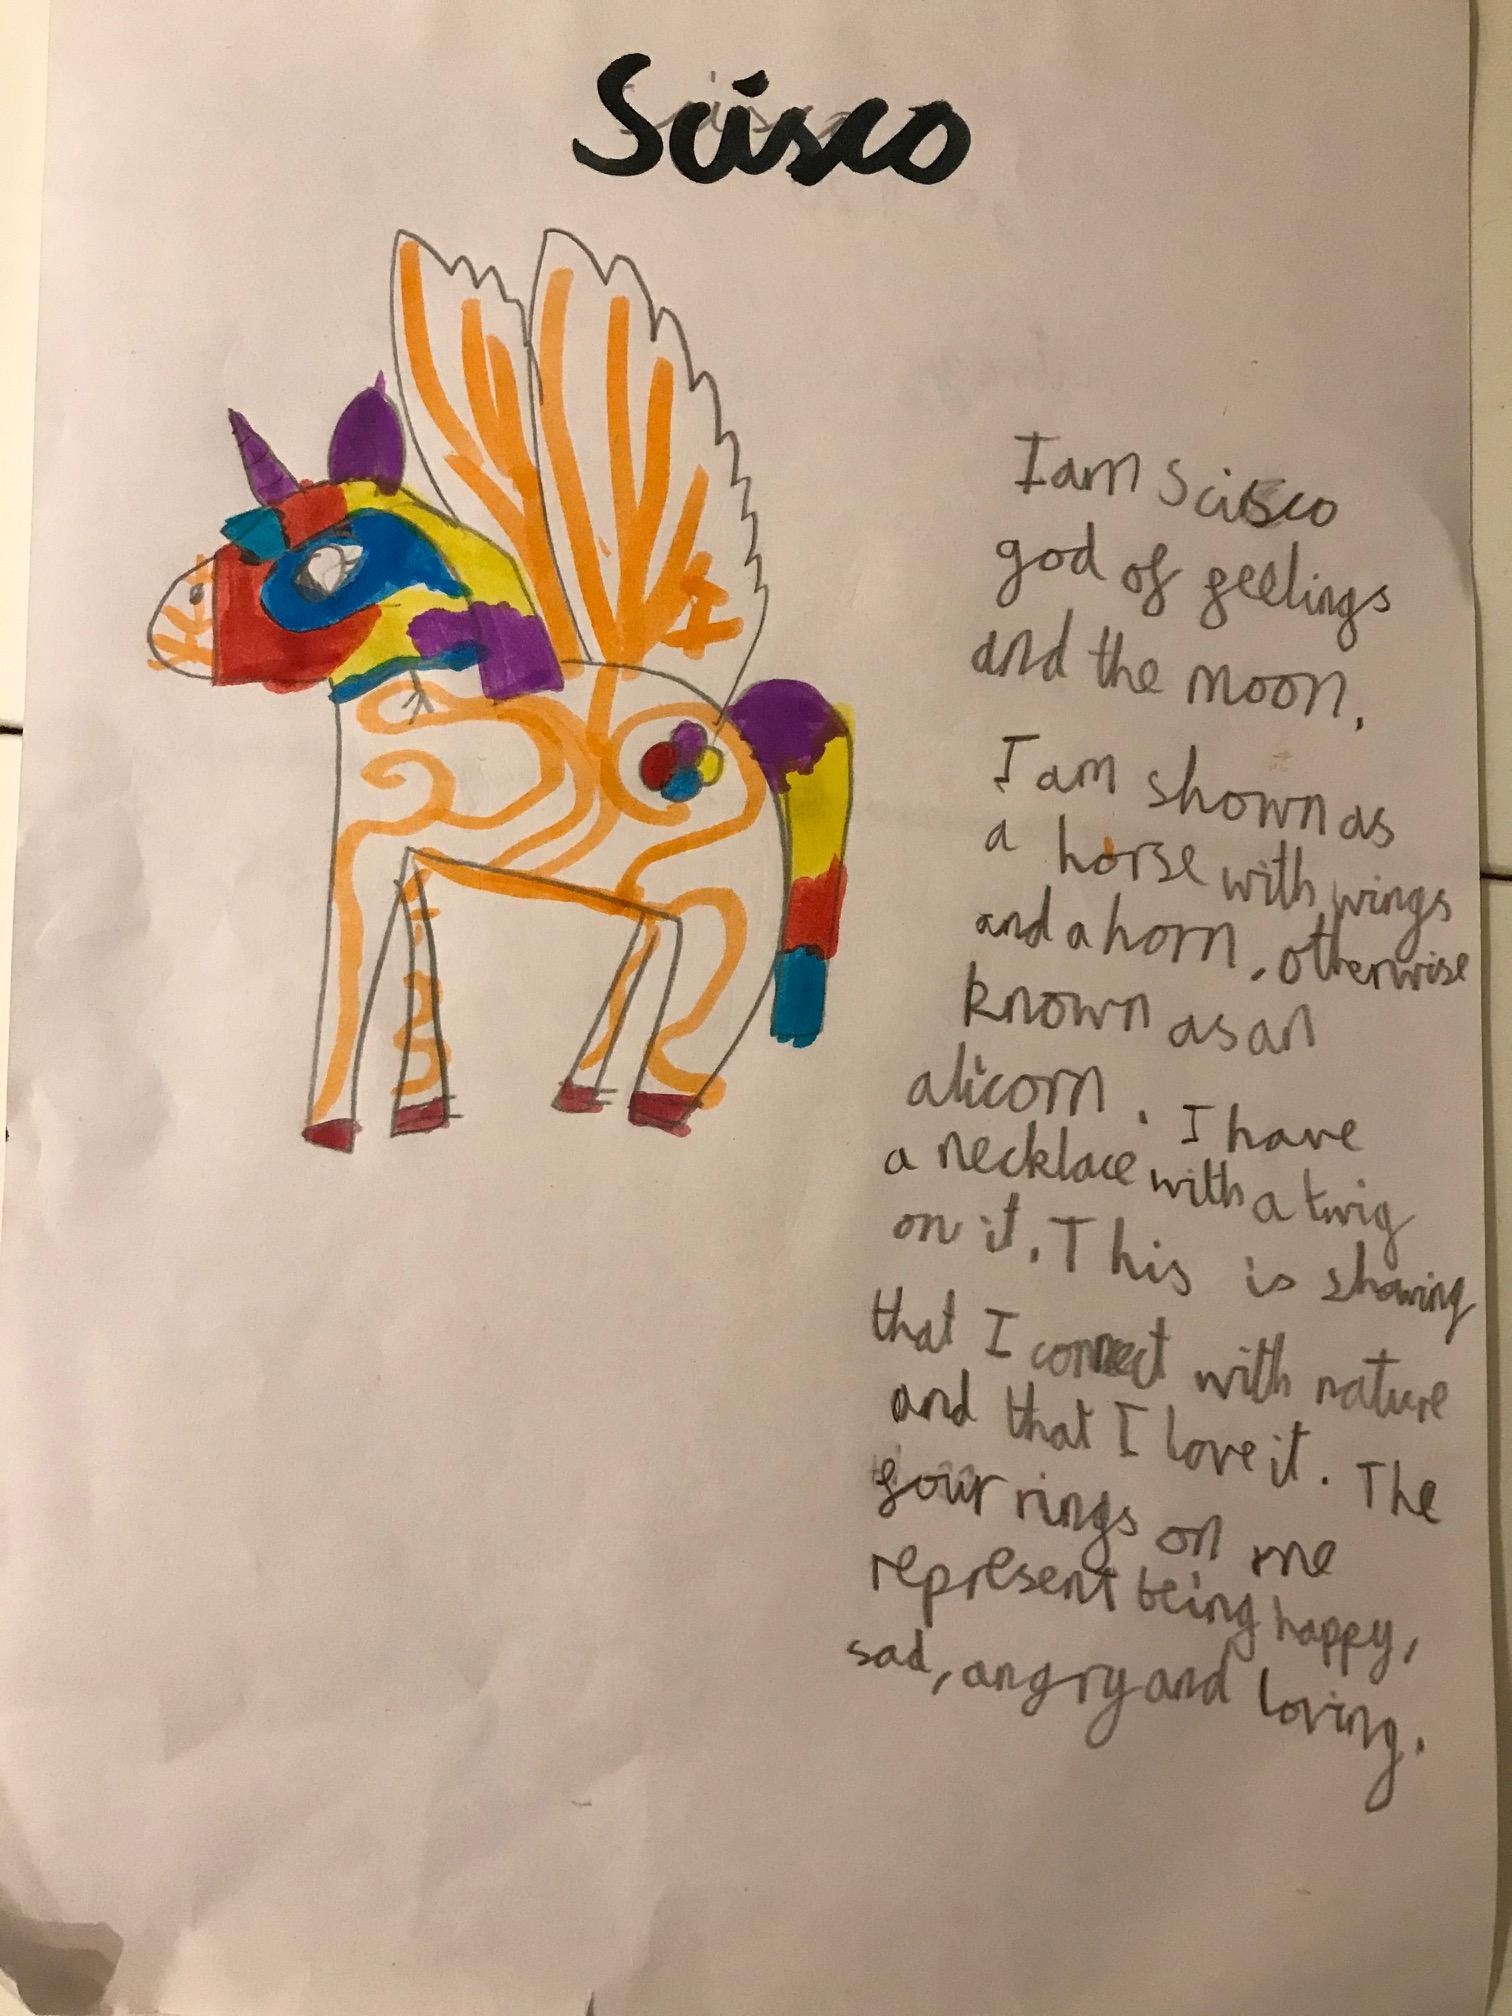 Scisco
I am Scisco
god of feelings
and the moon.
I am shown as
a horse with wings
and a horn, otherwise
known as an
alicorn. I have
a necklace with a twig
on it. This is showing
that I connect with nature
and that I love it. The
four rings on me
represent being happy,
sad, angry and loving.